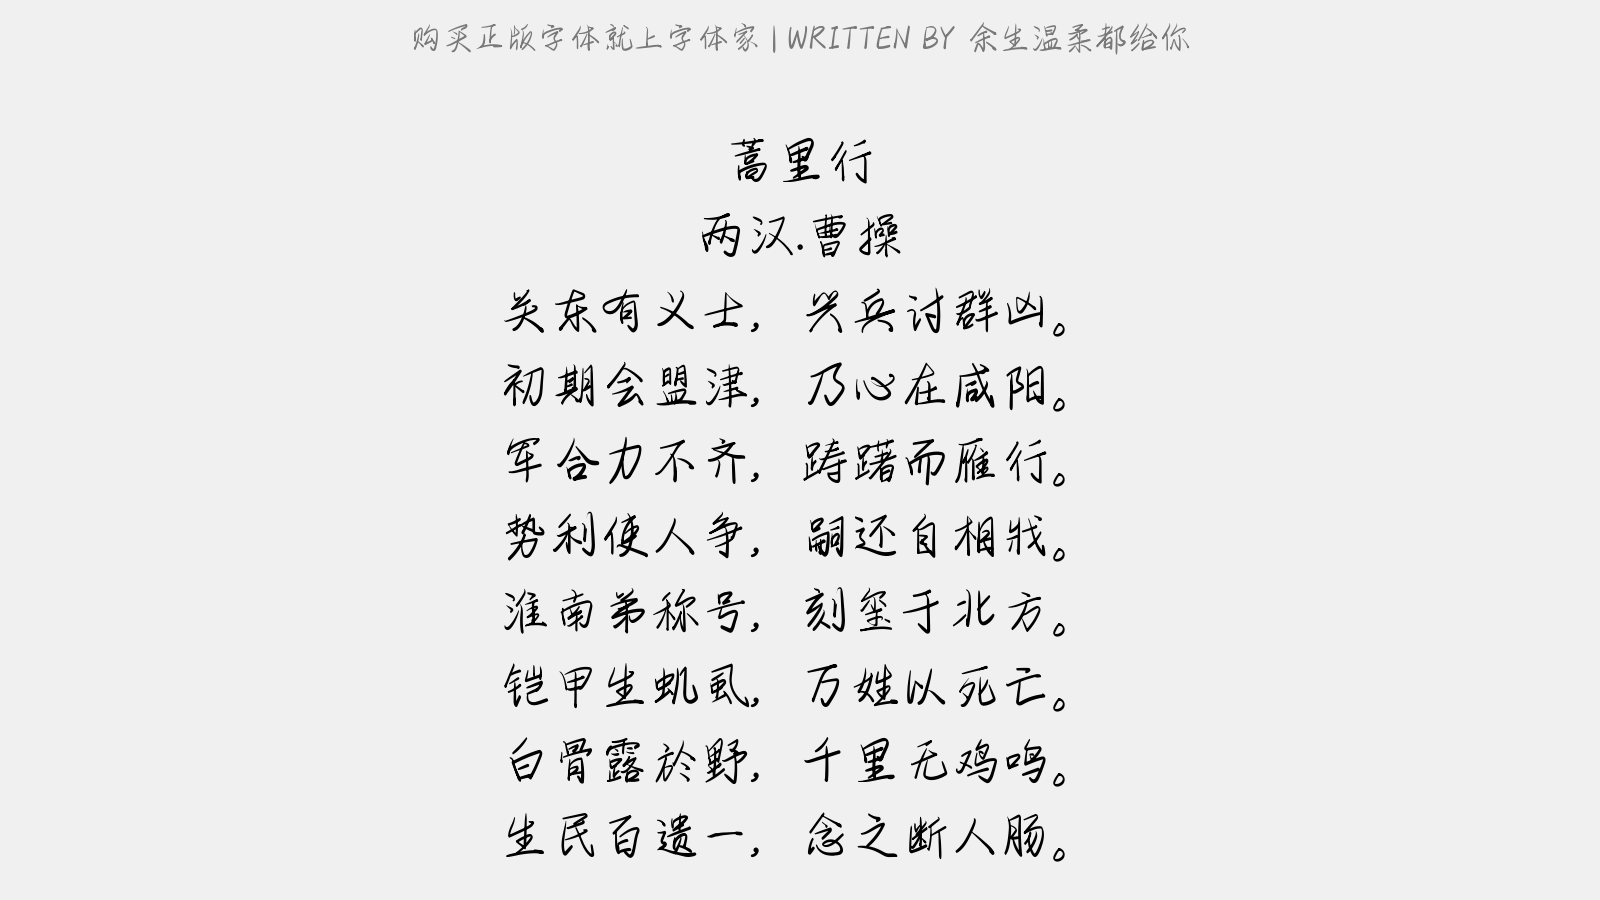 购买正版字体就上字体家 | WRITTEN BY 余生温柔都给你
蒿里行
两汉.曹操
关东有义士, 兴兵讨群凶。
初期会盟津, 乃心在咸阳。
军合力不齐, 踌躇而雁行。
势利使人争, 嗣还自相戕。
淮南弟称号, 刻玺于北方。
铠甲生虮虱, 万姓以死亡。
白骨露於野, 千里无鸡鸣。
生民百遗一, 念之断人肠。